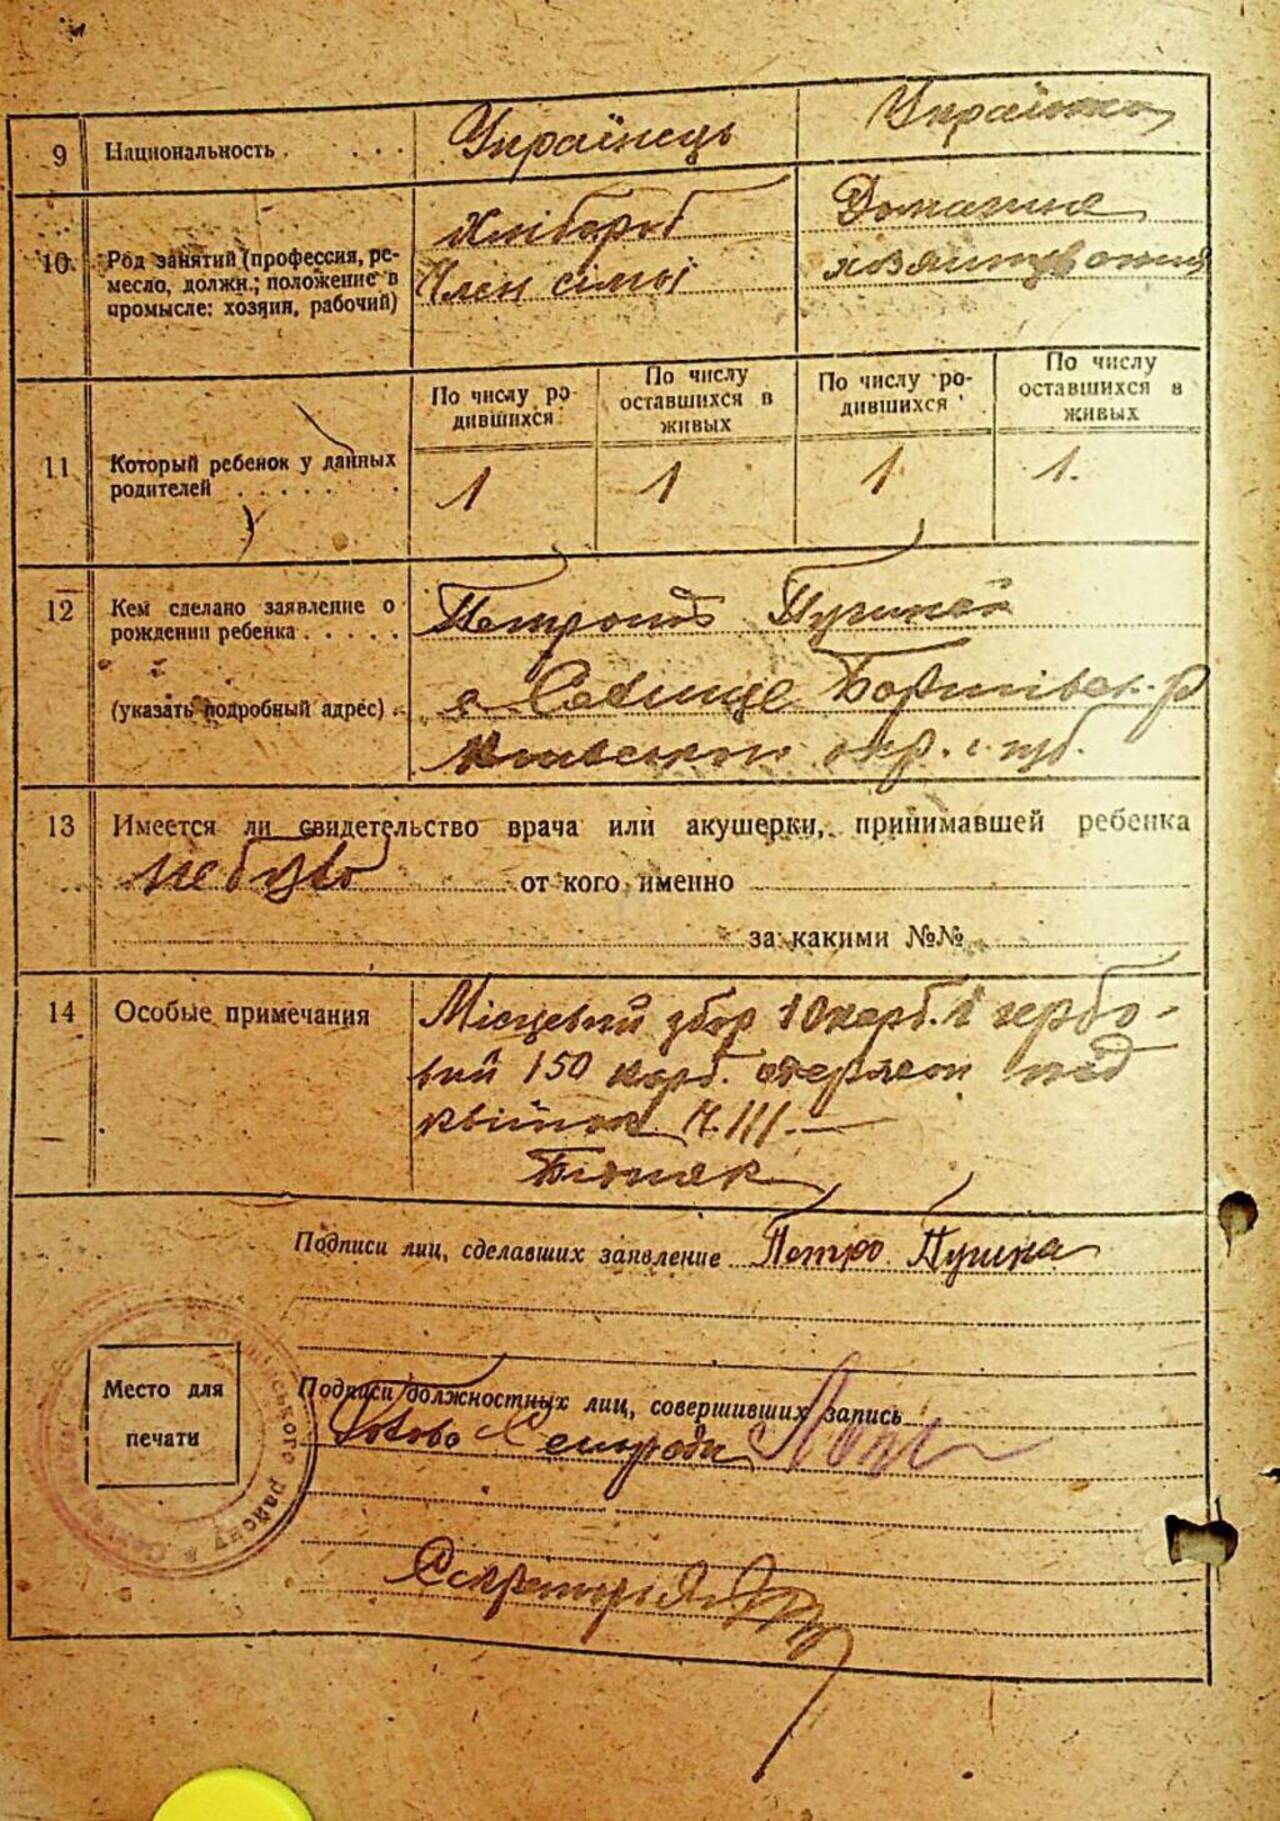 9 Национальность . . . . Українець Українка
10. Род занятий (профессия, ре-
месло, должн.; положение в
промысле: хозяин, рабочий)
Хлібороб
Член сімьі
Домашнє
хозяйнування
По числу ро-
дившихся
По числу
оставшихся в
живых
По числу ро-
дившихся
По числу
оставшихся в
живых
11 Который ребенок у данных
родителей . . . . . .
1 1 1 1.
12 Кем сделано заявление о
рождении ребенка . . . . .
(указать подробный адрес) .
Петром Пушкой
с
Київської окр. і губ.
13 Имеется ли свидетельство врача или акушерки, принимавшей ребенка
не було от кого именно
за какими №№
14 Особые примечания
Місцевий збор 10 карб. і гербо-
вий 150 карб. під
квіток III.—
Бідняк
Подписи лиц, сделавших заявление Петро Пушка
Место для
печати
Подписи должностных лиц, совершивших запись
Голова Сельради
Секретарь
ського району